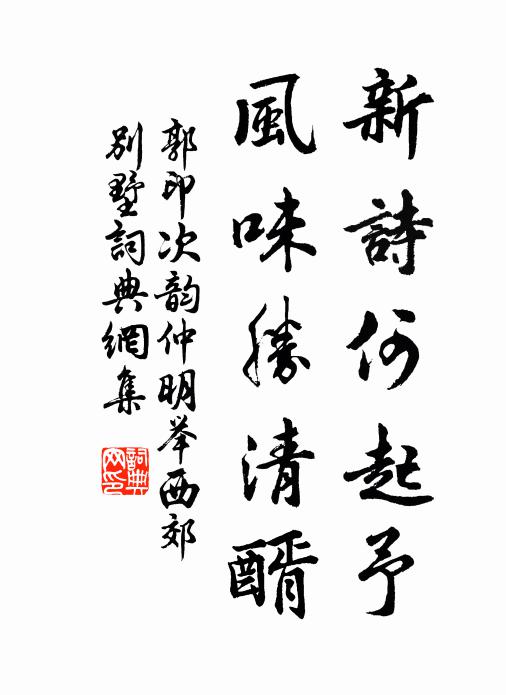 新詩何起予
風味勝清醑
郭印次韵仲明举西郊
別墅詞典網集
詞典网印